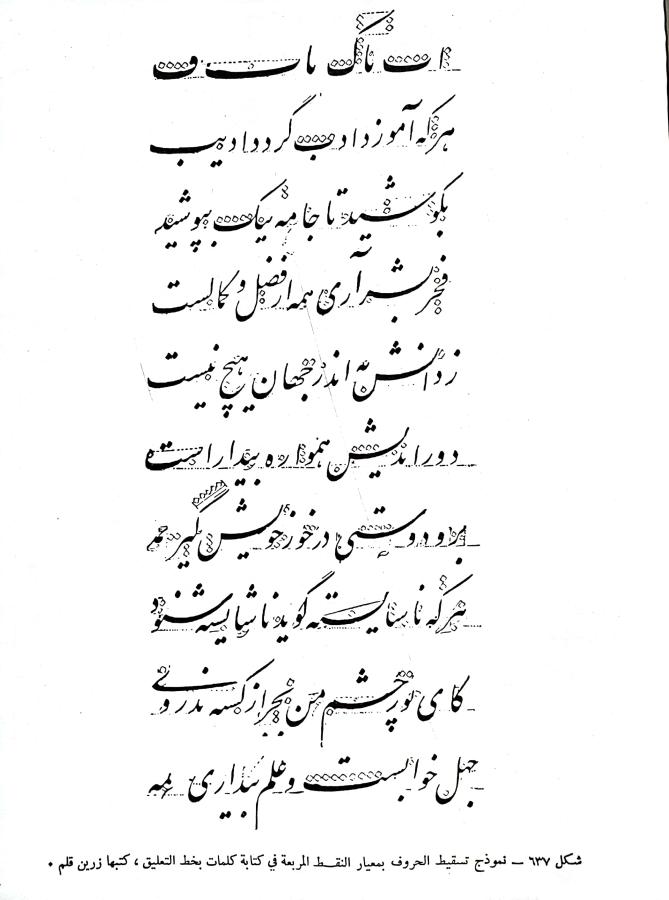 ا ت تا ک با ب ف
هر که آموزد ادب گردد ادیب
بکوشید تا جامه نیک بپوشید
فخر بشر آری همه از فضل و کمالست
ز دانش به اندر جهان هیچ نیست
دور اندیش همواره بیدار است
برو دوستی در خور خویش گیر
هر که ناشایسته گوید ناشایسته شنود
کای نور چشم من بجز از کشته ندروی
جهل خوابست و علم بیداری
شكل ٦٣٧ — نموذج تسقيط الحروف بمعيار النقط المربعة في كتابة كلمات بخط التعليق ، كتبها زرين قلم ٠